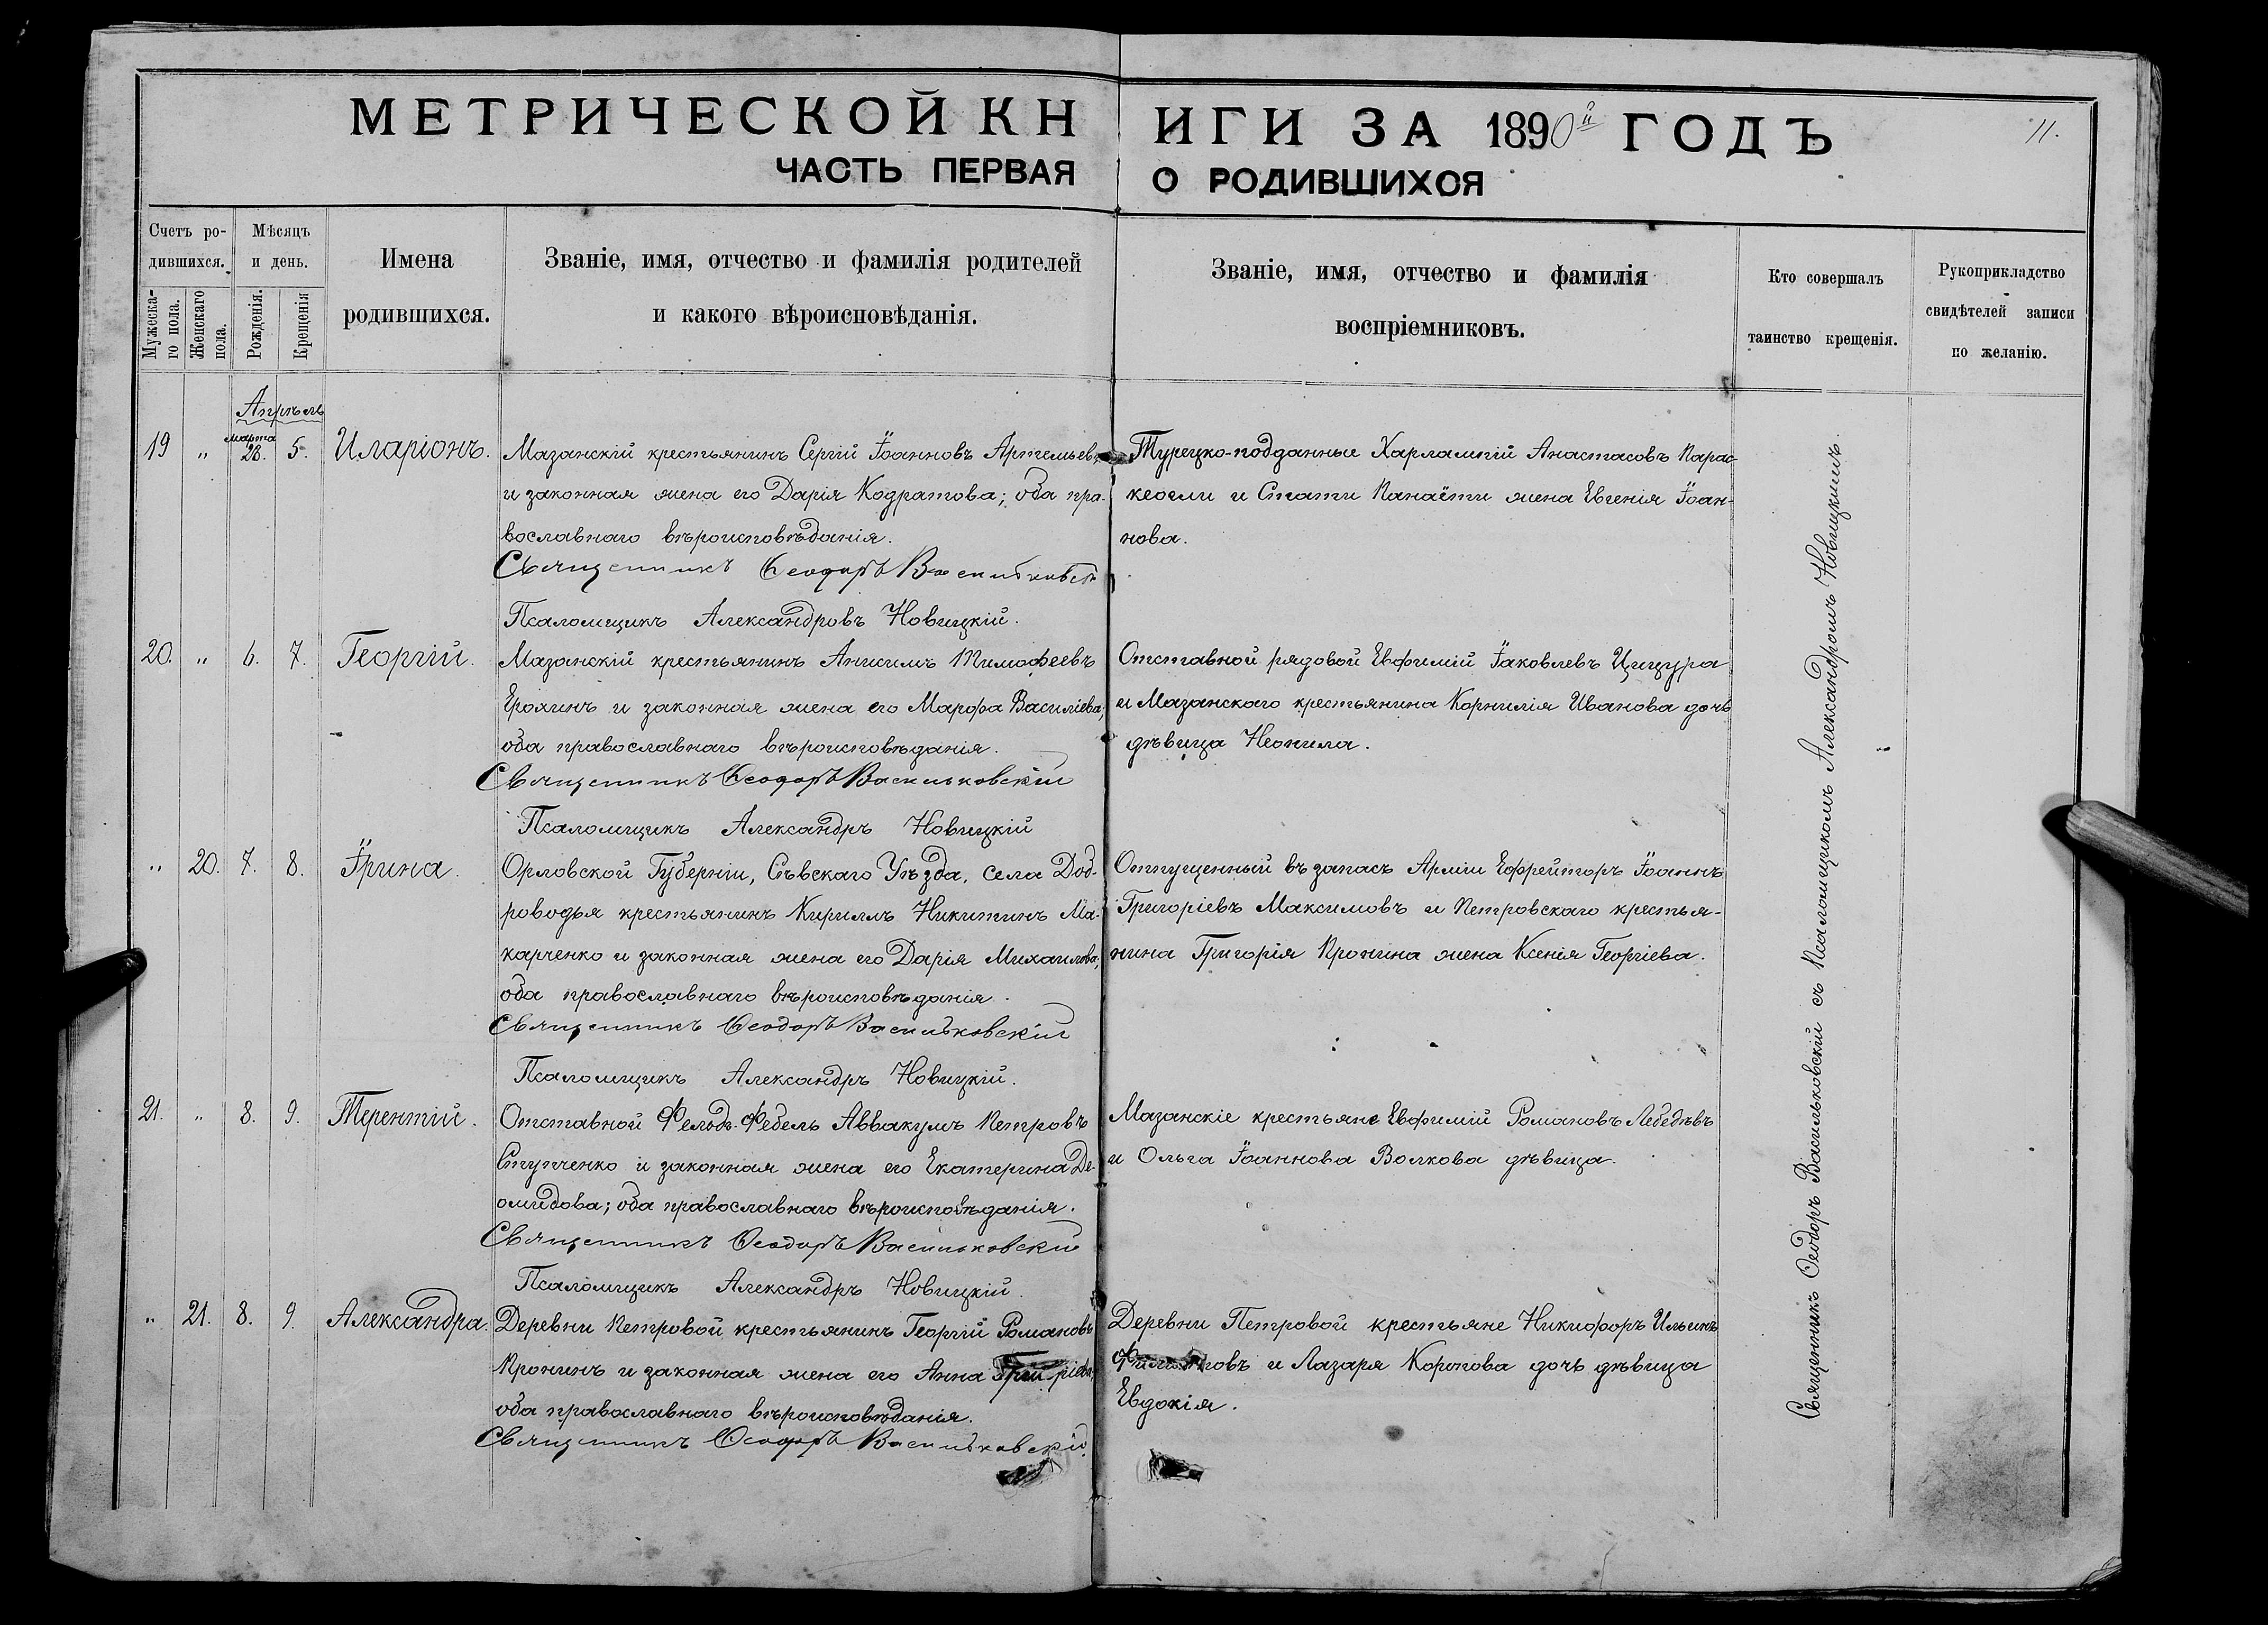 МЕТРИЧЕСКОЙ КНИГИ ЗА 1890й ГОДЪ
11.
ЧАСТЬ ПЕРВАЯ О РОДИВШИХСЯ
Счетъ ро-
дившихся.
Мужеска-
го пола.
Женскаго
пола.
Мѣсяцъ
и день.
Рожденія.
Крещенія
Имена
родившихся.
Званіе, имя, отчество и фамилія родителей
и какого вѣроисповѣданія.
Званіе, имя, отчество и фамилія
воспріемниковъ.
Кто совершалъ
таинство крещенія.
Рукоприкладство
свидѣтелей записи
по желанію.
Апрѣль
19 „ марта 28. 5. Иларіонъ.
Мазанскій крестьянинъ Сергій Іоанновъ Артемьевъ
и законная жена его Дарія Кодратова; оба пра-
вославнаго вѣроисповѣданія.
Священникъ Ѳеодоръ Васильковскій
Псаломщикъ Александровъ Новицкій.
Турецко-подданные Харлампій Анастасовъ Парас-
кеогли и Стати Панаёти жена Евгенія Іоан-
нова.
20. „ 6. 7. Георгій.
Мазанскій крестьянинъ Анисимъ Тимофеевъ
Ерохинъ и законная жена его Марфа Василіева;
оба православнаго вѣроисповѣданія.
Священникъ Ѳеодоръ Васильковскій
Псаломщикъ Александръ Новицкій
Отставной рядовой Евфимій Іаковлевъ Цицура
и Мазанскаго крестьянина Корнилія Иванова дочь
дѣвица Неонила.
„ 20. 7. 8. Ірина.
Орловской Губерніи, Сѣвскаго Уѣзда, села Доб-
роводья крестьянинъ Кириллъ Никитинъ Ма-
карченко и законная жена его Дарія Михаилова;
оба православнаго вѣроисповѣданія.
Священникъ Ѳеодоръ Васильковскій
Псаломщикъ Александръ Новицкій.
Отпущенный въ запасъ Арміи Ефрейторъ Іоаннъ
Григоріевъ Максимовъ и Петровскаго крестья-
нина Григорія Пронина жена Ксенія Георгіева.
21. „ 8. 9. Терентій.
Отставной Фельдъ-Фебель Аввакумъ Петровъ
Ступченко и законная жена его Екатерина Де-
омидова; оба православнаго вѣроисповѣданія.
Священникъ Ѳеодоръ Васильковскій
Псаломщикъ Александръ Новицкій.
Мазанскіе крестьяне Евфимій Романовъ Лебедѣвъ
и Ольга Іоаннова Волкова дѣвица.
„ 21. 8. 9. Александра.
Деревни Петровой крестьянинъ Георгій Романовъ
Пронинъ и законная жена его Анна
оба православнаго вѣроисповѣданія.
Священникъ Ѳеодоръ Васильковскій.
Деревни Петровой крестьяне Никифоръ Ильинъ
и Лазаря Коропова дочь дѣвица
Евдокія.
Священникъ Ѳеодоръ Васильковскій съ Псаломщикомъ Александромъ Новицкимъ.